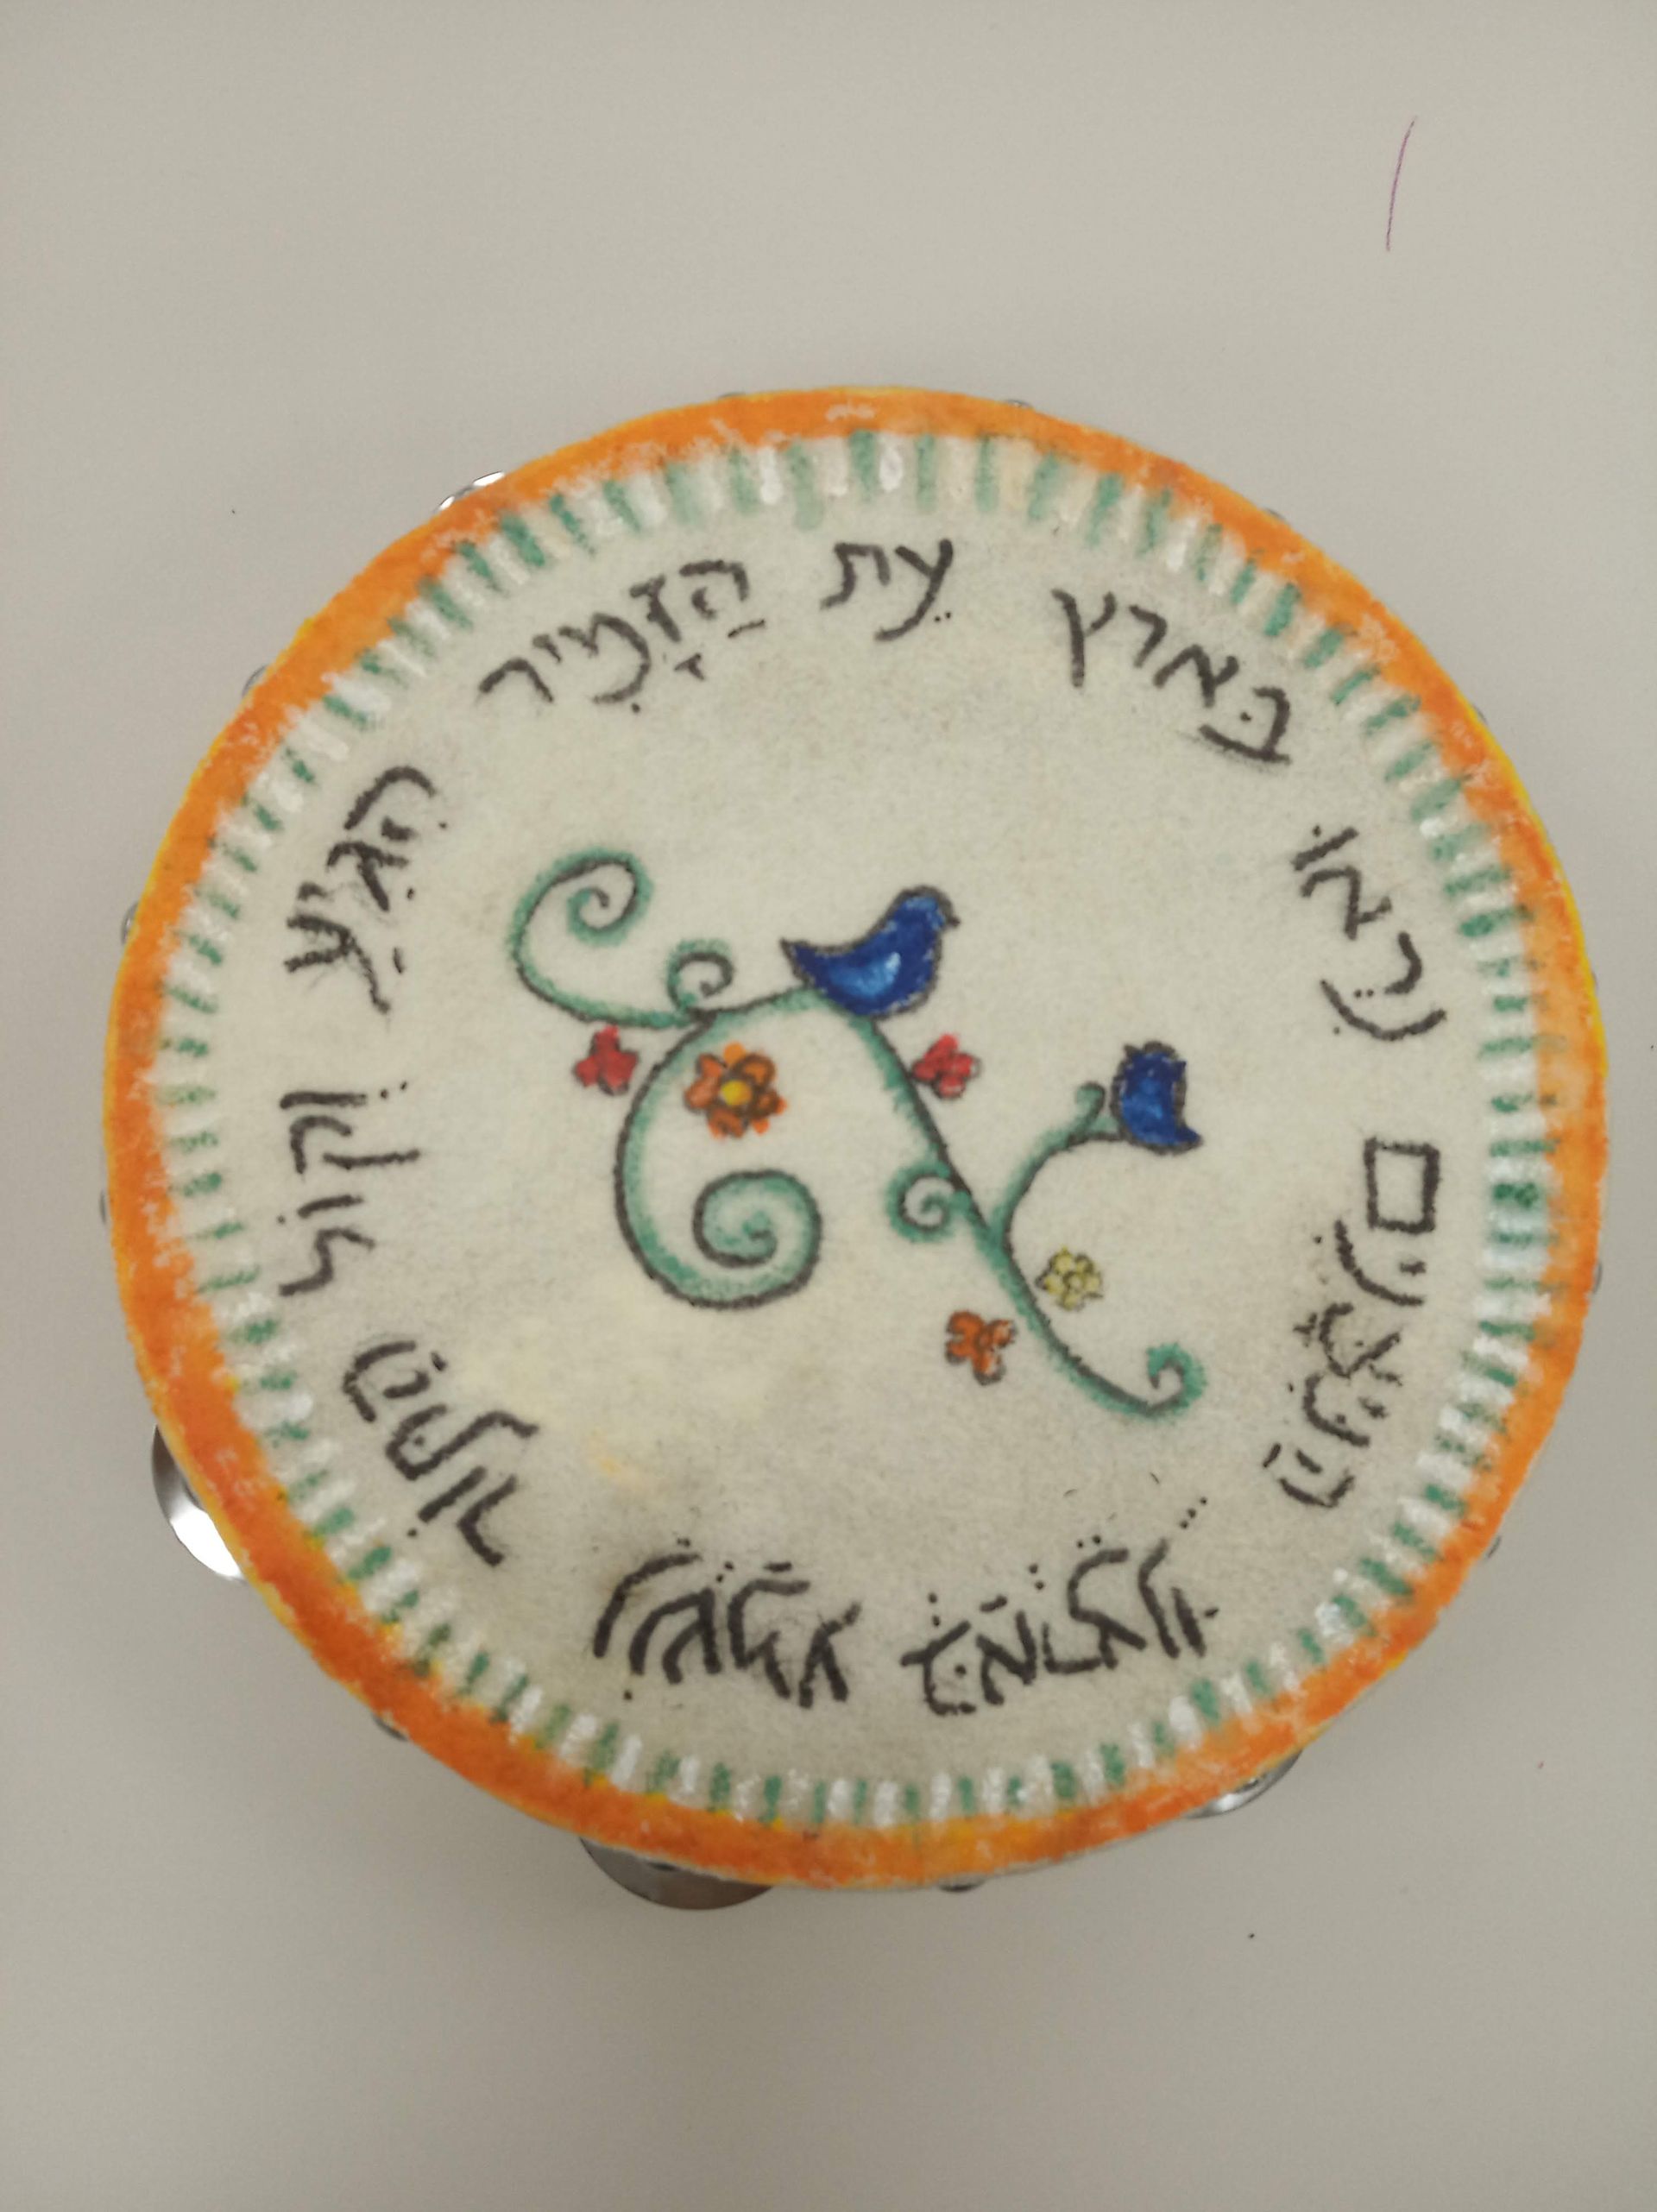 הַנִּצָּנִים נִרְאוּ בַּארץ עֵת הַזָּמִיר הִגִּיעַ וְקוֹל הַתּוֹר נִשְׁמַע בְּאַרְצֵנוּ